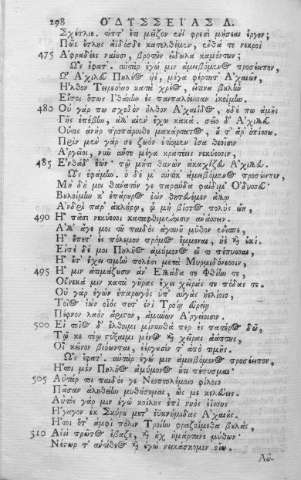 298 ΟΔΥΣΣΕΙΑΣ Λ.
Σχέτλιε, τίπτ' ἔτι μεῖζον ἐνὶ φρεσὶ μήσεαι ἔργον;
Πῶς ἔτλης ἄϊδόσδε κατελθέμεν, ἔνθά τε νεκροὶ
475 Ἀφραδέες ναίουσι, βροτῶν εἴδωλα καμόντων;
Ὣς ἔφατ'. αὐτὰρ ἐγώ μιν ἀμειβόμενος προσέειπον,
Ὦ Ἀχιλεῦ Πηλῆος υἱέ, μέγα φέρτατ' Ἀχαιῶν,
Ἦλθον Τειρεσίαο κατὰ χρέος, εἴ τινα βουλὴν
Εἴποι ὅπως Ἰθάκην ἐς παιπαλόεσσαν ἱκοίμην.
480 Οὐ γάρ πω σχεδὸν ἦλθον Ἀχαιΐδος, οὐδέ πω ἀμῆς
Γῆς ἐπέβην, ἀλλ' αἰὲν ἔχω κακά. σεῖο δ' Ἀχιλλεῦ
Οὔτις ἀνὴρ προπάροιθε μακάρτατος, οὔτ' ἄρ' ὀπίσσω.
Πρὶν μὲν γάρ σε ζωὸν ἐτίομεν ἶσα θεοῖσιν
Ἀργεῖοι, νῦν αὖτε μέγα κρατέεις νεκύεσσιν,
485 Ἐνθάδ' ἐών· τῷ μήτι θανὼν ἀκαχίζευ Ἀχιλλεῦ.
Ὣς ἐφάμην. ὁ δέ μ' αὐτίκ' ἀμειβόμενος προσέειπεν,
Μὴ δή μοι θάνατόν γε παραύδα φαίδιμ' Ὀδυσσεῦ.
Βουλοίμην κ' ἐπάρουρος ἐὼν θητευέμεν ἄλλῳ
Ἀνδρὶ παρ' ἀκλήρῳ, ᾧ μὴ βίοτος πολὺς εἴη,
490 Ἢ πᾶσιν νεκύεσσι καταφθιμένοισιν ἀνάσσειν.
Ἀλλ' ἄγε μοι τοῦ παιδὸς ἀγαυοῦ μῦθον ἔνισπε,
Ἢ ἕπετ' ἐς πόλεμον πρόμος ἔμμεναι, ἠὲ καὶ οὐκί.
Εἰπὲ δέ μοι Πηλῆος ἀμύμονος εἴ τι πέπυσσαι,
Ἢ ἔτ' ἔχει τιμὴν πολέσιν μετὰ Μυρμιδόνεσσιν,
495 Ἦ μιν ἀτιμάζουσιν ἀν' Ἑλλάδα τε Φθίην τε,
Οὕνεκά μιν κατὰ γῆρας ἔχει χεῖράς τε πόδας τε.
Οὐ γὰρ ἐγὼν ἐπαρωγὸς ὑπ' αὐγὰς ἠελίοιο,
Τοῖος ἐὼν οἷός ποτ' ἐνὶ Τροίῃ εὐρείῃ
Πέφνον λαὸν ἄριστον, ἀμύνων Ἀργείοισιν.
500 Εἰ τοιόσδ' ἔλθοιμι μίνυνθά περ ἐς πατέρος δῶ,
Τῷ κέ τῳ στύξαιμι μένος καὶ χεῖρας ἀάπτους,
Οἳ κεῖνον βιόωνται, ἐέργουσίν τ' ἀπὸ τιμῆς.
Ὣς ἔφατ'. αὐτὰρ ἐγώ μιν ἀμειβόμενος προσέειπον,
Ἤτοι μὲν Πηλῆος ἀμύμονος οὔτι πέπυσμαι.
505 Αὐτάρ τοι παιδός γε Νεοπτολέμοιο φίλοιο
Πᾶσαν ἀληθείην μυθήσομαι, ὥς με κελεύεις.
Αὐτὸς γάρ μιν ἐγὼ κοίλης ἐπὶ νηὸς ἐΐσης
Ἤγαγον ἐκ Σκύρου μετ' ἐϋκνήμιδας Ἀχαιούς.
Ἤτοι ὅτ' ἀμφὶ πόλιν Τροίην φραζοίμεθα βουλὰς,
510 Αἰεὶ πρῶτος ἔβαζε, καὶ οὐχ ἡμάρτανε μύθων·
Νέστωρ τ' ἀντίθεος καὶ ἐγὼ νικάσκομεν οἴω.
Αὐ-